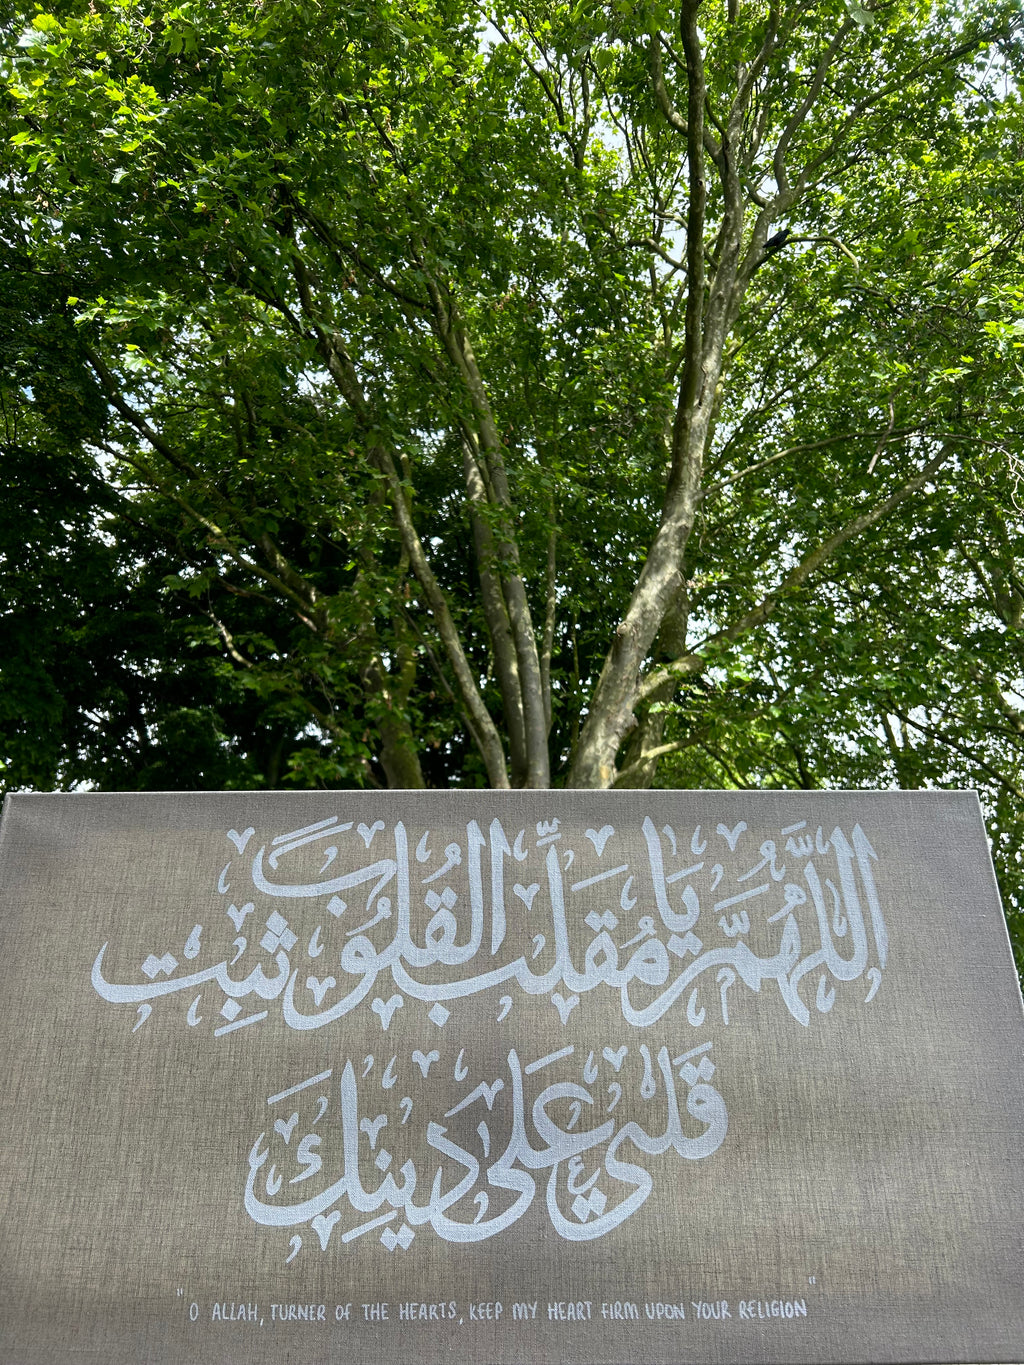 اللَّهُمَّ يَا مُقَلِّبَ القُلُوبِ ثَبِّتْ
قَلْبِي عَلَى دِينِكَ
"O ALLAH, TURNER OF THE HEARTS, KEEP MY HEART FIRM UPON YOUR RELIGION"